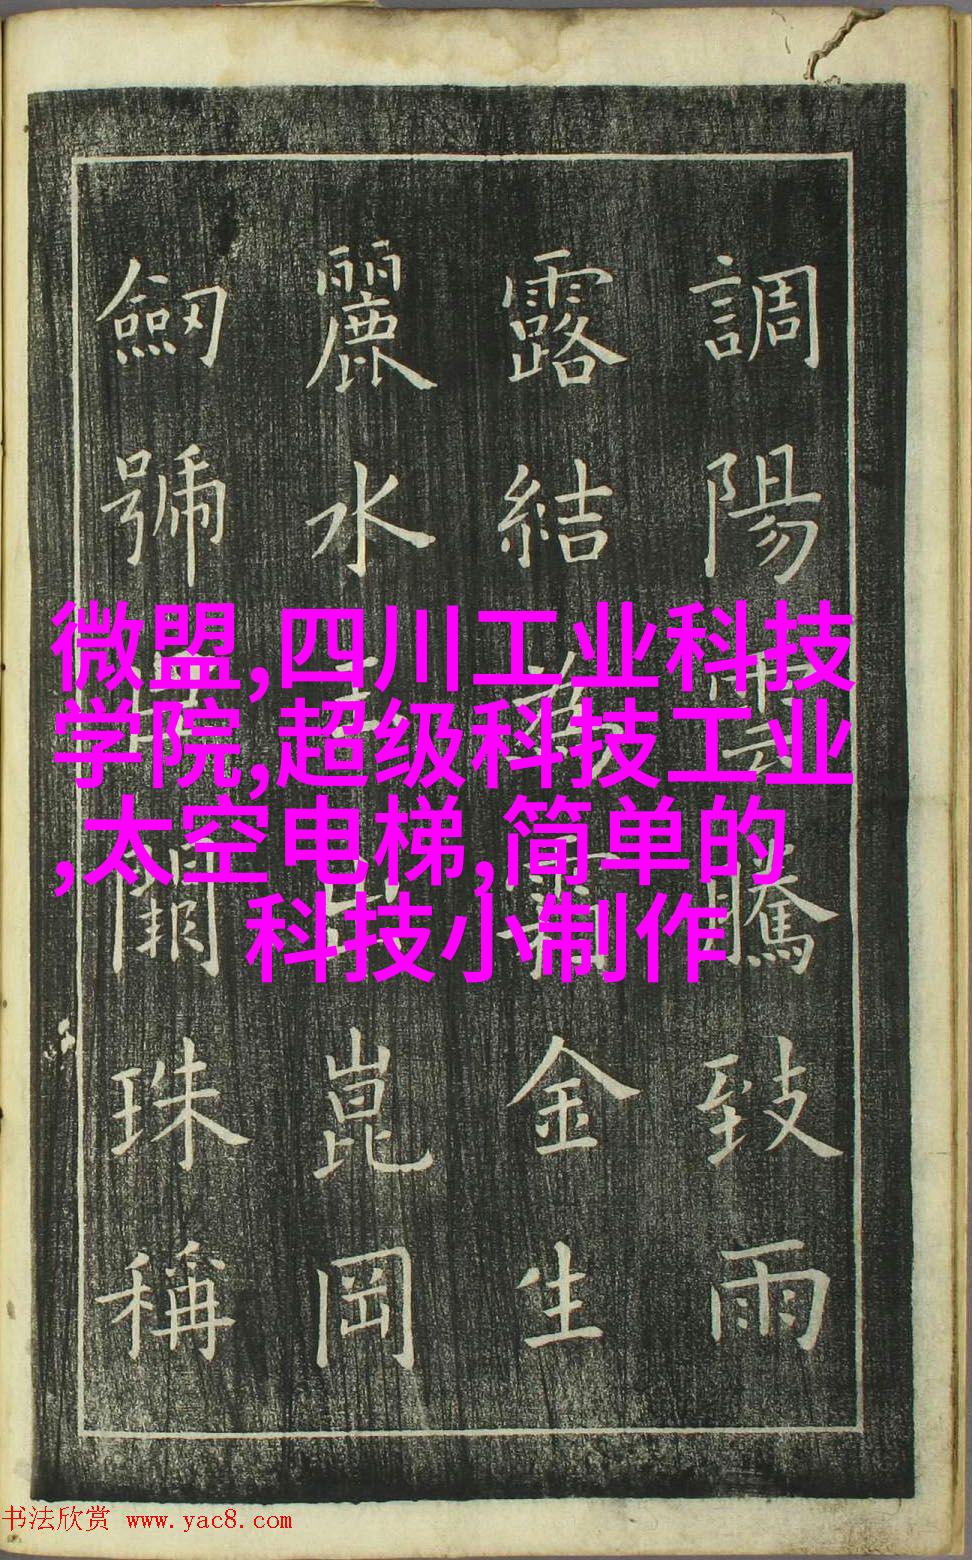 調陽雲騰致雨
露結爲金生
麗水崑岡
劒號闕珠稱
微盟,四川工业科技
学院,超级科技工业
,太空电梯,简单的
科技小制作
书法欣赏 www.yac8.com